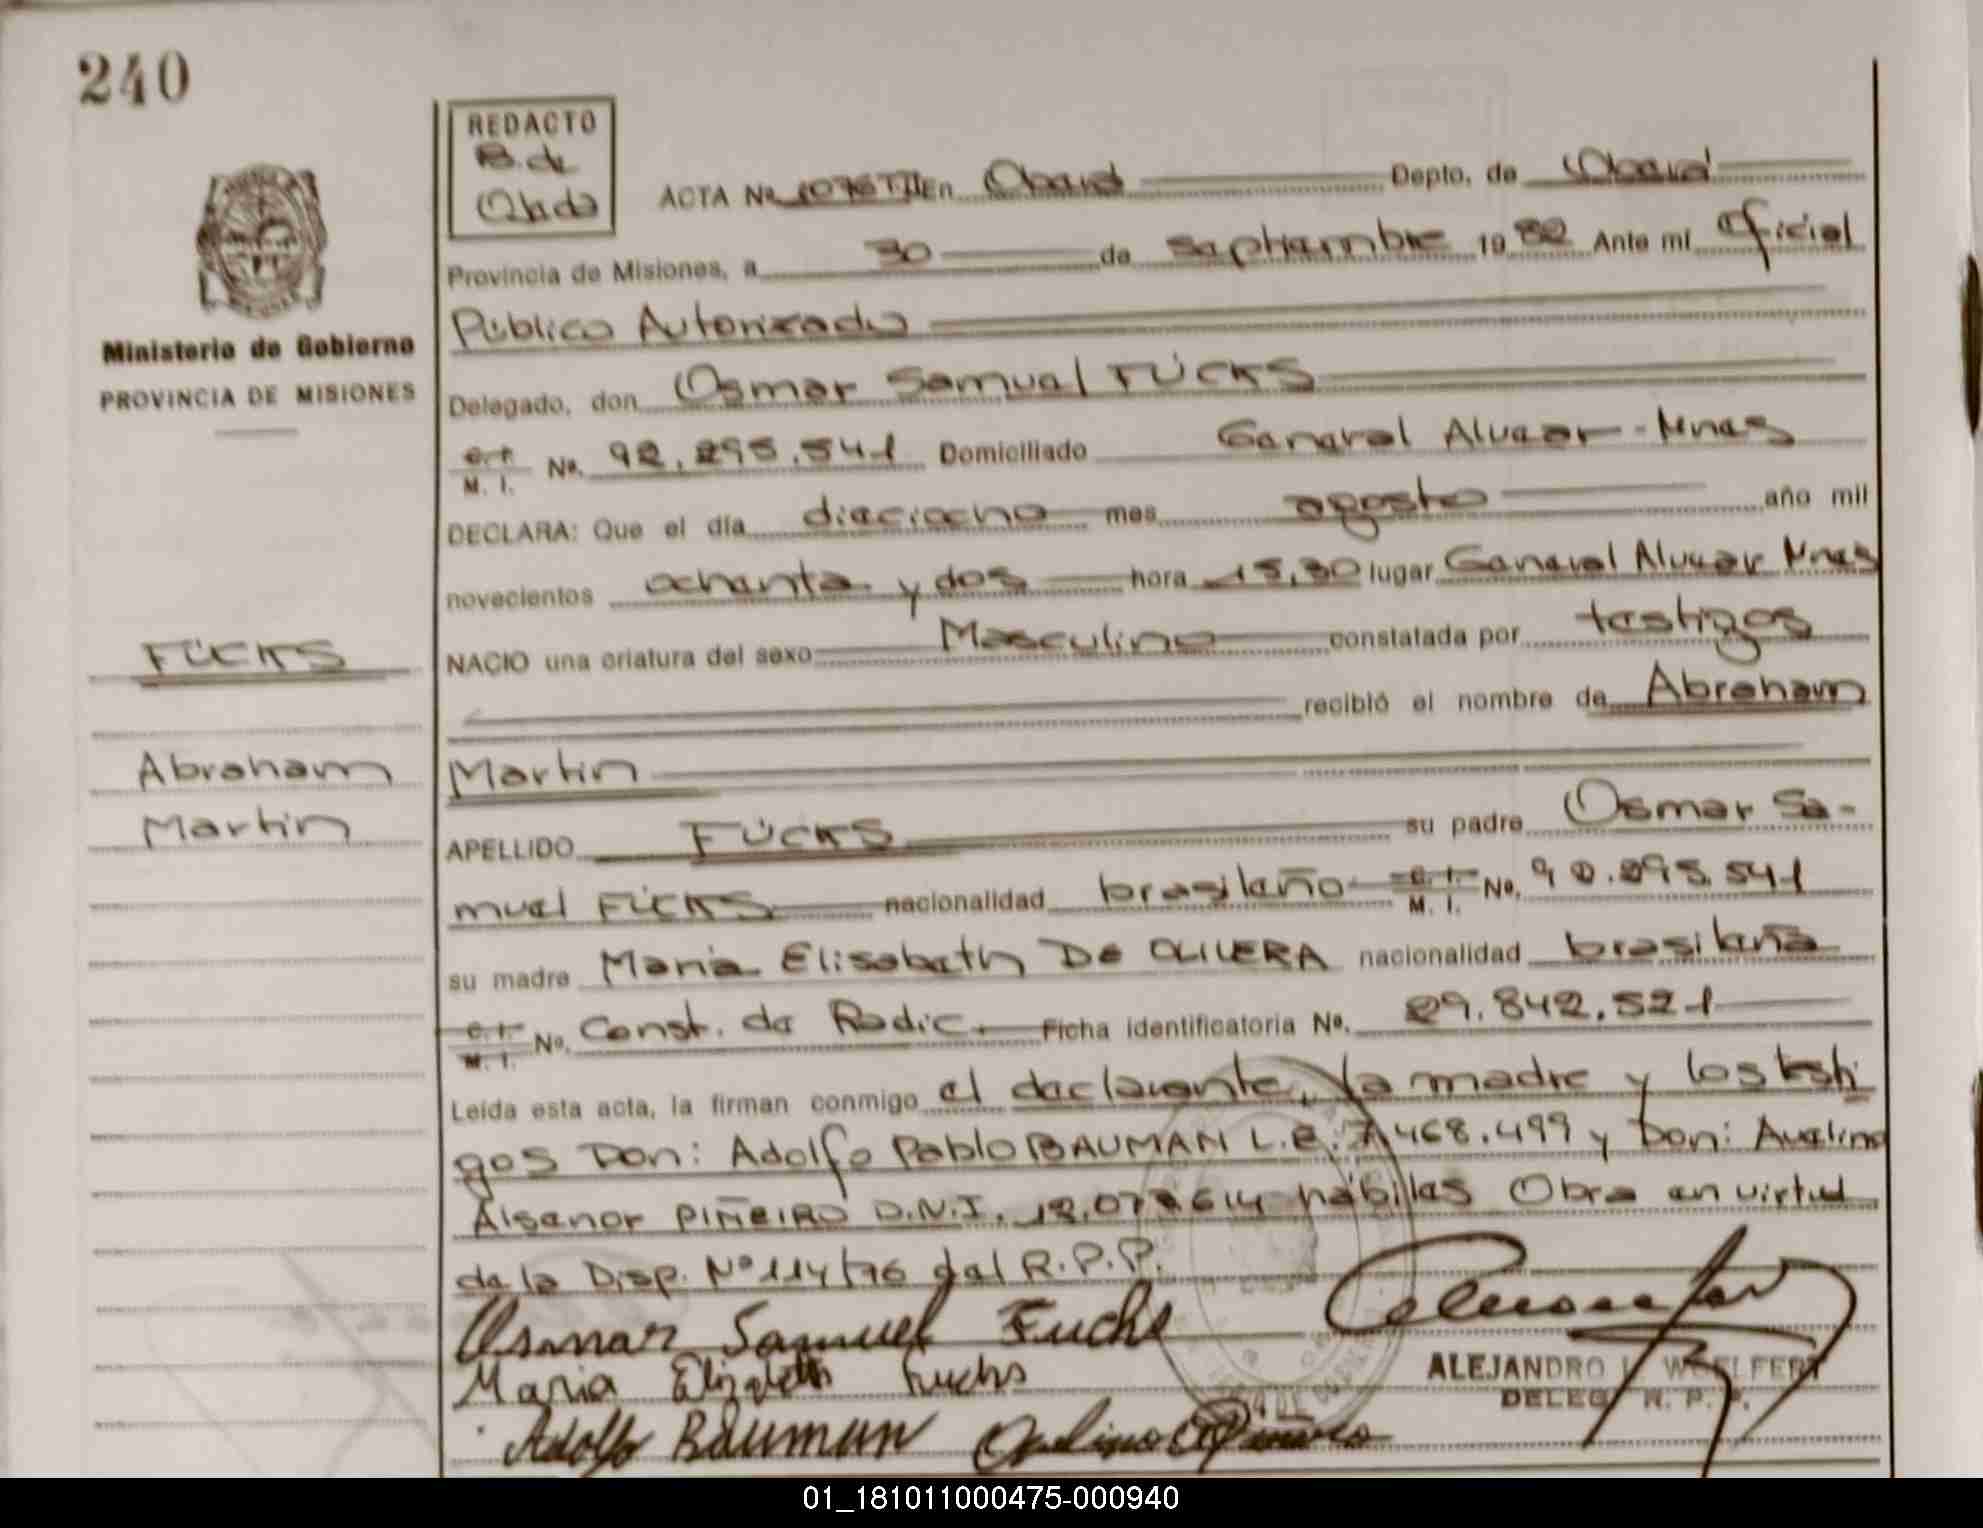 240
REDACTO
B. de
Olada
ACTA Nº 1076 TII En Oberá Depto. de Oberá
Provincia de Misiones, a 30 de septiembre 19 82 Ante mi Oficial
Ministerio de Gobierno
PROVINCIA DE MISIONES
Público Autorizado
Delegado, don Osmar Samuel FÜCKS
C. I. M. I. Nº. 92.295.541 Domiciliado General Alvear - Mnes
DECLARA: Que el día dieciocho mes agosto año mil
novecientos ochenta y dos hora 15,30 lugar General Alvear Mnes
FÜCKS
NACIO una criatura del sexo Masculino constatada por testigos
recibió el nombre de Abraham
Abraham
Martin
Martin
APELLIDO FÜCKS su padre Osmar Sa-
muel FÜCKS nacionalidad brasileño C. I. M. I. Nº. 92.295.541
su madre Maria Elisabeth DE OLIVERA nacionalidad brasileña
C. I. M. I. Nº. Const. de Radic. Ficha identificatoria Nº. 29.842.521
Leída esta acta, la firman conmigo el declarante, la madre y los testi
gos Don: Adolfo Pablo BAUMAN L.E. 7.468.499 y Don: Avelino
Alsenor PIÑEIRO D.N.I. 12.078614 hábiles Obra en virtud
de la Disp. Nº 114/76 del R.P.P.
Osmar Samuel Fuchs
Maria Elizabeth Fuchs
ALEJANDRO L. WOELFERT
DELEG. R. P. P.
Adolfo Bauman Avelino A Piñeiro
01_181011000475-000940